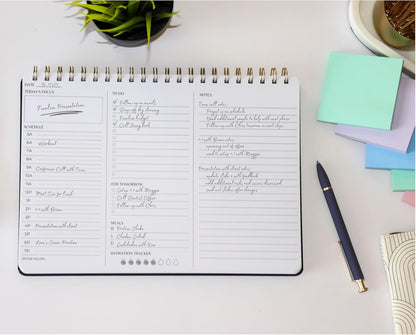 DATE
TODAY'S FOCUS
Timeline Presentation
SCHEDULE
5A
6A Workout
7A
8A
9A Conference Call with Team
10A
11A
12P Meet Sam for lunch
1P
2P 1:1 with Brian
3P
4P Presentation with client
5P
6P
7P
AFTER HOURS
TO DO
Follow up on emails
Drop off dry cleaning
Finalize budget
Call Stacy back
FOR TOMORROW
Setup 1:1 with Maggie
Call Dentist Office
Follow up with Chris
MEALS
B Protein Shake
L Chicken Salad
D
HYDRATION TRACKER
NOTES
Team call notes:
Project is on schedule
Need additional people to help with next phase
Follow up with Chris tomorrow on next steps
1:1 with Brian notes:
upcoming out of office
need to setup 1:1 with Maggie
Presentation with client notes:
update slides with feedback
add additional notes and review discussed
send out slides after changes